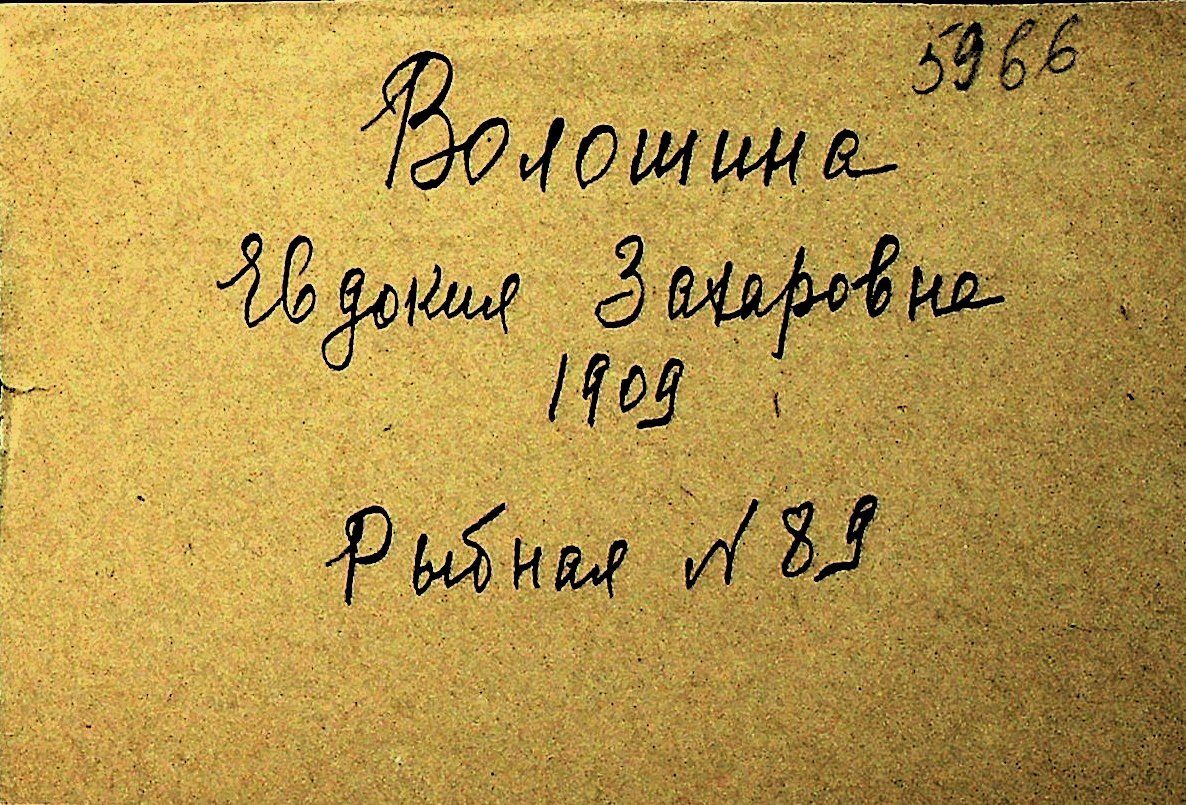 5966
Волошина
Евдокия Захаровна
1909
Рыбная N 89